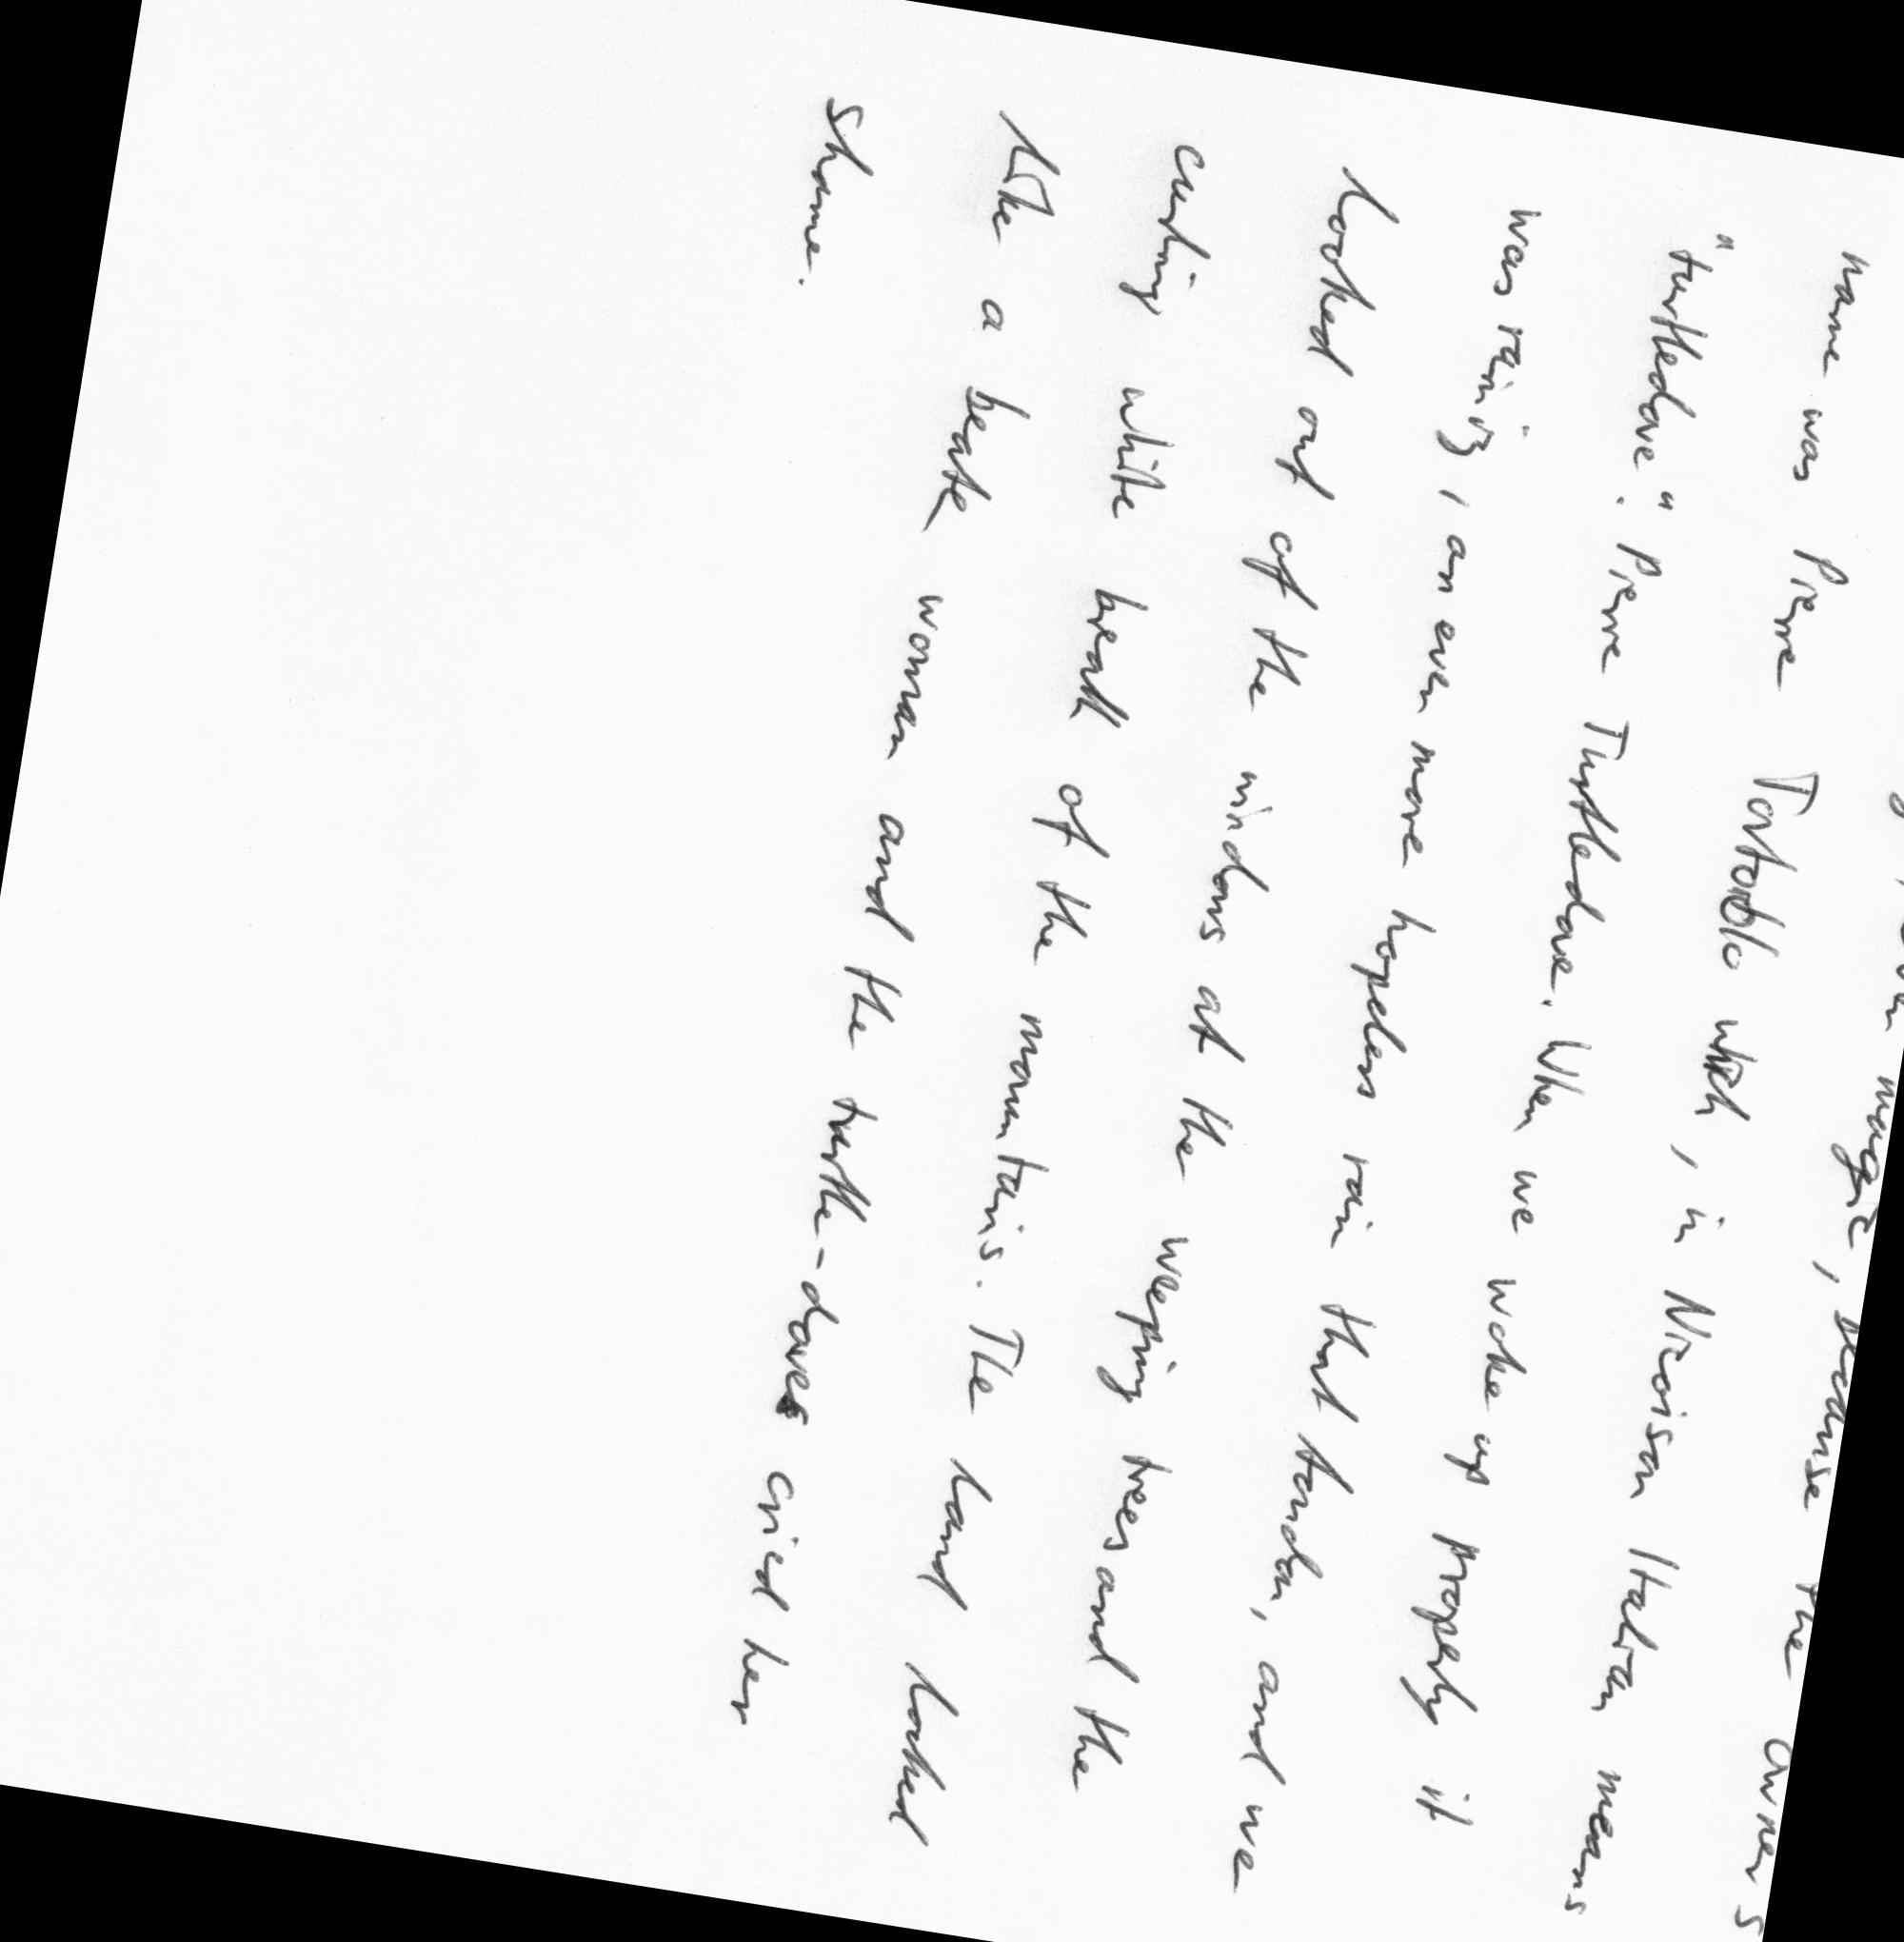 magic, because the owner's
name was Pierre Tortorolo which, in Nicoisan Italian means
"turtledove". Pierre Turtledove. When we woke up properly it
was raining, an even more hopeless rain that London, and we
looked out of the windows at the weeping trees and the
curling white breath of the mountains. The land looked
like a beaten woman and the turtle-doves cried her
shame.